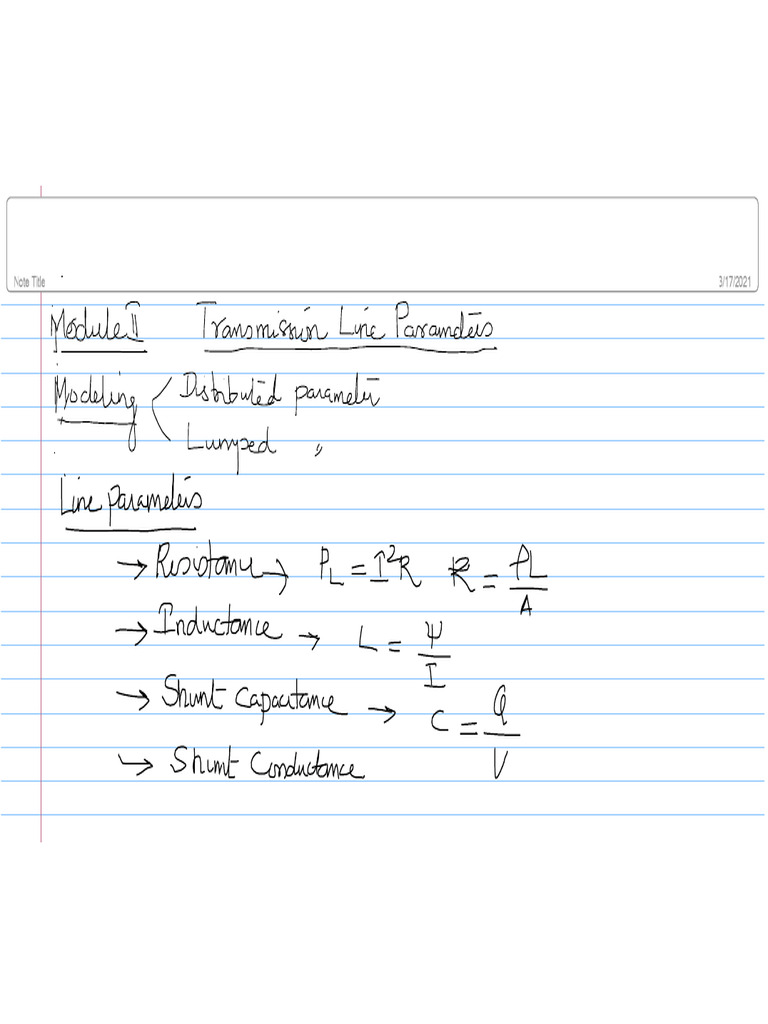 Note Title
3/17/2021
Module II Transmission Line Parameters
Modeling < Distributed parameter
Lumped "
Line parameters
→ Resistance → P_L = I²R R = ρL/A
→ Inductance → L = Ψ/I
→ Shunt Capacitance → C = Q/V
→ Shunt Conductance